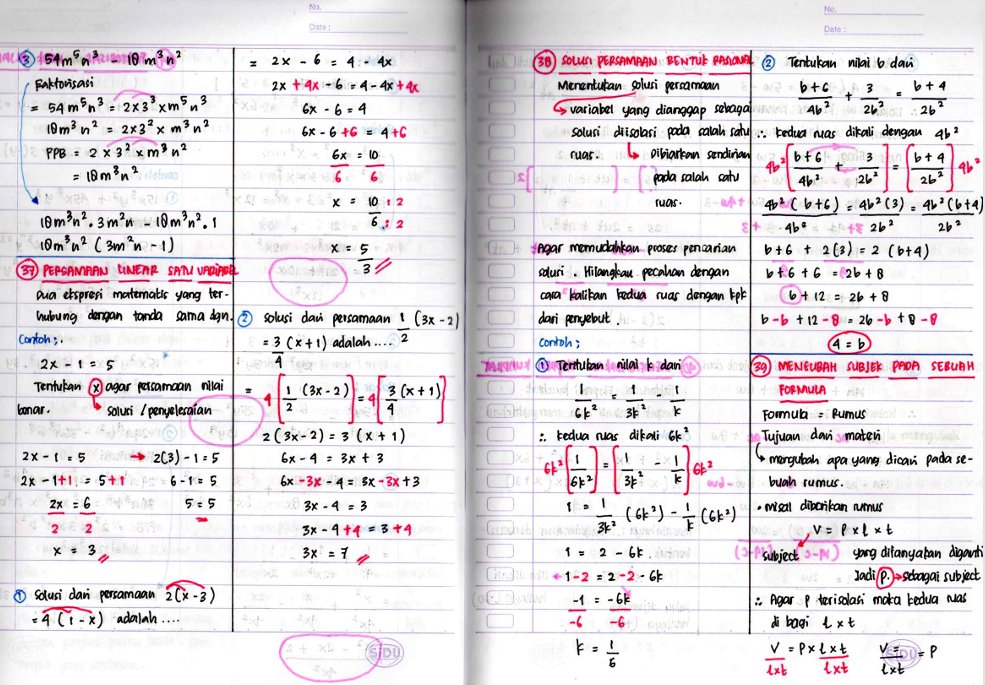 No.
Date :
③ 54m⁵n³ - 18m³n²
Faktorisasi
= 54m⁵n³ = 2x3³ x m⁵n³
18m³n² = 2x3² x m³n²
PPB = 2 x 3² x m³n²
= 18m³n²
18m³n² . 3m²n - 18m³n² . 1
18m³n² ( 3m²n - 1)
37 PERSAMAAN LINEAR SATU VARIABEL
Dua ekspresi matematis yang ter-
hubung dengan tanda sama dgn.
Contoh :
2x - 1 = 5
Tentukan x agar persamaan nilai
benar. → solusi / penyelesaian
2x - 1 = 5 → 2(3) - 1 = 5
2x - 1 + 1 = 5 + 1 6 - 1 = 5
2x/2 = 6/2 5 = 5
x = 3
① Solusi dari persamaan 2(x - 3)
= 4 (1 - x) adalah ....
= 2x - 6 = 4 - 4x
2x + 4x - 6 = 4 - 4x + 4x
6x - 6 = 4
6x - 6 + 6 = 4 + 6
6x/6 = 10/6
x = 10/6 : 2 : 2
x = 5/3
② Solusi dari persamaan 1/2 (3x - 2)
= 3/4 (x + 1) adalah ....
= 4 [1/2 (3x - 2)] = 4 [3/4 (x + 1)]
2 (3x - 2) = 3 (x + 1)
6x - 4 = 3x + 3
6x - 3x - 4 = 3x - 3x + 3
3x - 4 = 3
3x - 4 + 4 = 3 + 4
3x = 7
SIDU
No.
Date :
38 SOLUSI PERSAMAAN BENTUK RASIONAL
Menentukan solusi persamaan
→ variabel yang dianggap sebagai
solusi diisolasi pada salah satu
ruas. → Dibiarkan sendirian
pada salah satu
ruas.
Agar memudahkan proses pencarian
solusi . Hilangkan pecahan dengan
cara kalikan kedua ruas dengan kpk
dari penyebut.
Contoh ;
① Tentukan nilai k dari
1/6k² = 1/3k² - 1/k
∴ kedua ruas dikali 6k²
6k² [1/6k²] = [1/3k² - 1/k] 6k²
1 = 1/3k² (6k²) - 1/k (6k²)
1 = 2 - 6k
1 - 2 = 2 - 2 - 6k
-1/-6 = -6k/-6
k = 1/6
② Tentukan nilai b dari
b+6/4b² + 3/2b² = b+4/2b²
∴ kedua ruas dikali dengan 4b²
4b² [b+6/4b² + 3/2b²] = [b+4/2b²] 4b²
4b² (b+6)/4b² = 4b² (3)/2b² = 4b² (b+4)/2b²
b + 6 + 2(3) = 2 (b+4)
b + 6 + 6 = 2b + 8
b + 12 = 2b + 8
b - b + 12 - 8 = 2b - b + 8 - 8
4 = b
39 MENGUBAH SUBJEK PADA SEBUAH
FORMULA
Formula = Rumus
Tujuan dari materi
→ mengubah apa yang dicari pada se-
buah rumus.
• misal diberikan rumus
V = P x l x t
subject yang ditanyakan diganti
Jadi P. → sebagai subject
∴ Agar P terisolasi maka kedua ruas
di bagi l x t
V/lxt = P x lxt/lxt V/lxt = P
SIDU